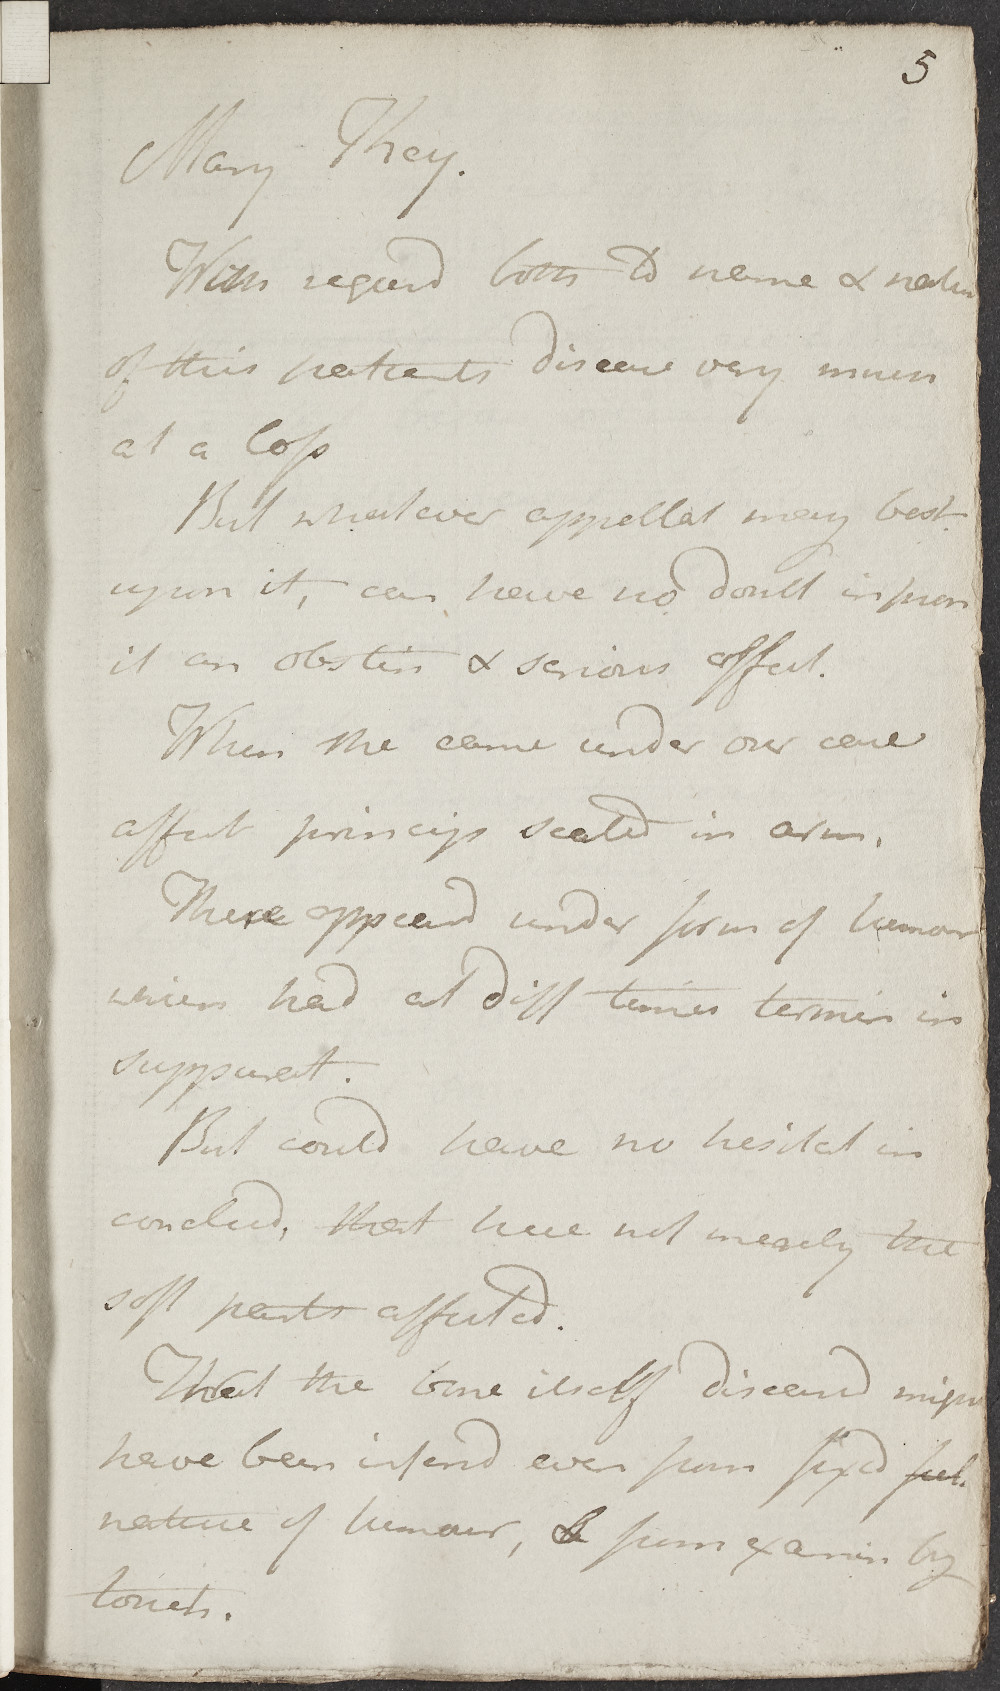 5
Mary They.
With regard both to name & natur
of this patients disease very much
at a loss
But whatever appellat may best.
upon it, can have no doubt in pron
it an obstin & serious affect.
When she came under our care
affect princip seated in arm.
There appeard under form of tumour
which had at diff times termin in
suppurat.
But could have no hesitat in
conclud, that here not merely the
soft parts affected.
That the bone itself diseased might
have been inferd even from fixd
nature of tumour, & from examin by
touch.